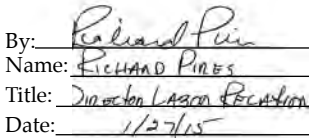 By: Richard Pires
Name: RICHARD PIRES
Title: DIRECTOR LABOR RELATION
Date: 1/27/15